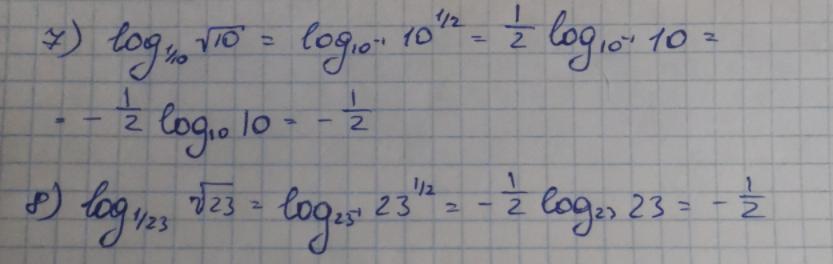 7) log₁/₁₀ √10 = log₁₀⁻¹ 10^1/2 = 1/2 log₁₀⁻¹ 10 =
= - 1/2 log₁₀ 10 = - 1/2
8) log₁/₂₃ √23 = log₂₃⁻¹ 23^1/2 = - 1/2 log₂₃ 23 = - 1/2